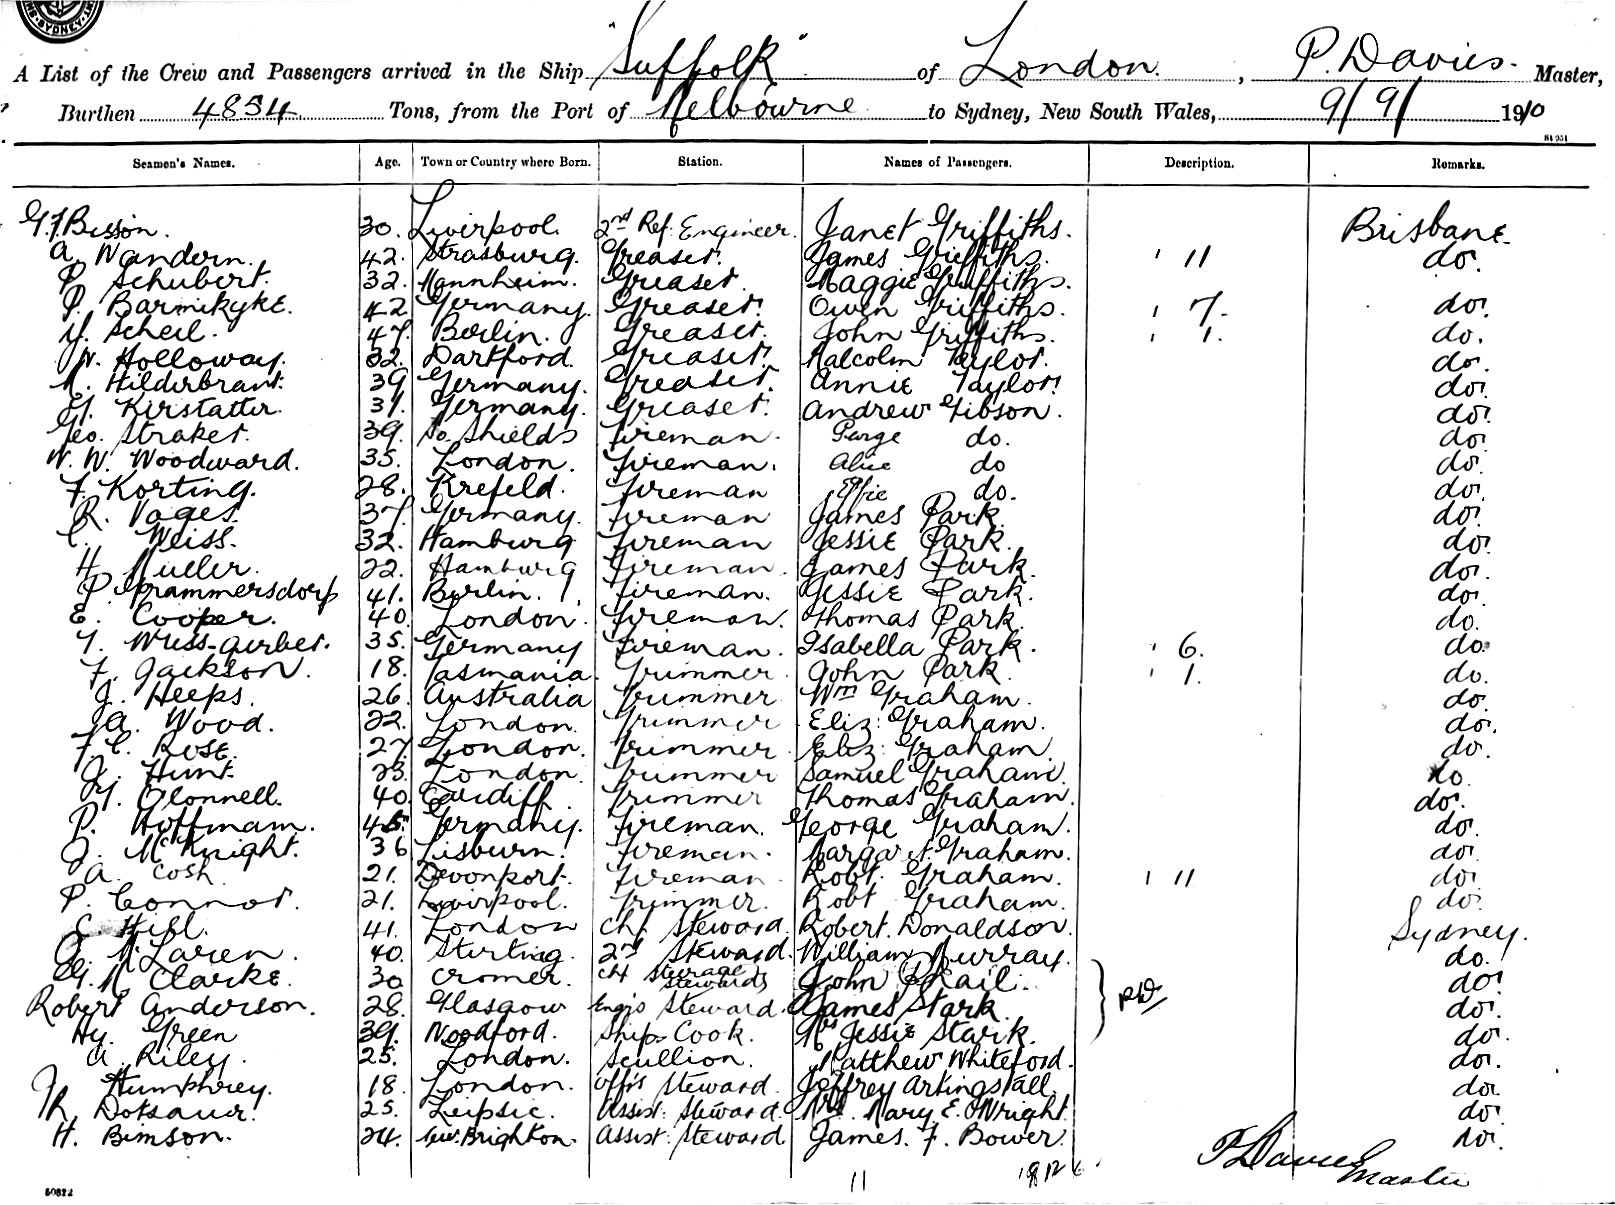 SYDNEY
A List of the Crew and Passengers arrived in the Ship "Suffolk" of London, P. Davies. Master,
Burthen 4834 Tons, from the Port of Melbourne to Sydney, New South Wales, 9/9/1910
Seamen's Names. Age. Town or Country where Born. Station. Names of Passengers. Description. Remarks.
G. F. Bisson. 30. Liverpool. 2nd Ref. Engineer. Janet Griffiths. Brisbane.
A. Wandern. 42. Strasburg. Greaser. James Griffiths. 11 do.
P. Schubert. 32. Mannheim. Greaser. Maggie Griffiths.
P. Barmikyke. 42 Germany. Greaser. Owen Griffiths. 7. do.
Scheil. 47. Berlin. Greaser. John Griffiths. 1. do.
W. Holloway. 32. Dartford. Greaser. Malcolm Taylor. do.
Hilderbrant. 39 Germany. Greaser. Annie Taylor. do.
Kirstatter. 31. Germany. Greaser. Andrew Gibson. do.
Geo. Straker. 39. So. Shields Fireman. do. do.
W. W. Woodward. 35. London. Fireman. Alice do do.
F. Korting. 28. Krefeld. Fireman Effie do. do.
R. Vages. 37. Germany. Fireman James Park. do.
C. Weiss. 32. Hamburg Fireman Jessie Park. do.
H. Muller. 22. Hamburg Fireman. James Park. do.
P. Grammersdorf 41. Berlin. Fireman. Jessie Park. do.
E. Cooper. 40. London. Fireman. Thomas Park. do.
Wiss-Gerber. 35. Germany Fireman. Isabella Park. 6. do.
F. Jackson. 18. Tasmania. Trimmer. John Park. 1. do.
J. Heeps. 26. Australia Trimmer Wm Graham. do.
Wood. 22. London. Trimmer Eliz: Graham. do.
F. C. Rose. 27. London. Trimmer Eliz: Graham. do.
Hunt. 23. London. Trimmer Samuel Graham. do.
O'Connell. 40. Cardiff. Trimmer Thomas Graham. do.
P. Hoffmam. 45. Germany. Fireman. George Graham. do.
J. McKnight. 36 Lisburn. Fireman. Margaret Graham. do.
A. Cosh 21. Devonport. Fireman Robt. Graham. 11 do.
P. Connor. 21. Liverpool. Trimmer. Robt Graham. do.
E. Hill. 41. London Chf. Steward. Robert. Donaldson. Sydney.
McLaren. 40. Stirling. 2nd Steward. William Murray. do.
Clarke. 30 Cromer. Chf Steerage Stewards John Phail. do.
Robert Anderson. 28. Glasgow Engrs Steward. James Stark. do.
Hy. Green 39. Woodford. Ships Cook. Mrs Jessie Stark. do.
A. Riley. 25. London. Scullion. Matthew Whiteford. do.
Humphrey. 18. London. Offrs Steward. Jeffrey Artingstall do.
Dotsauer. 25. Leipsic. Assist. Steward. Mrs. Mary E. Wright. do.
H. Bimson. 24. New Brighton. Assist. Steward James. F. Bower. do.
P Davies Master
11